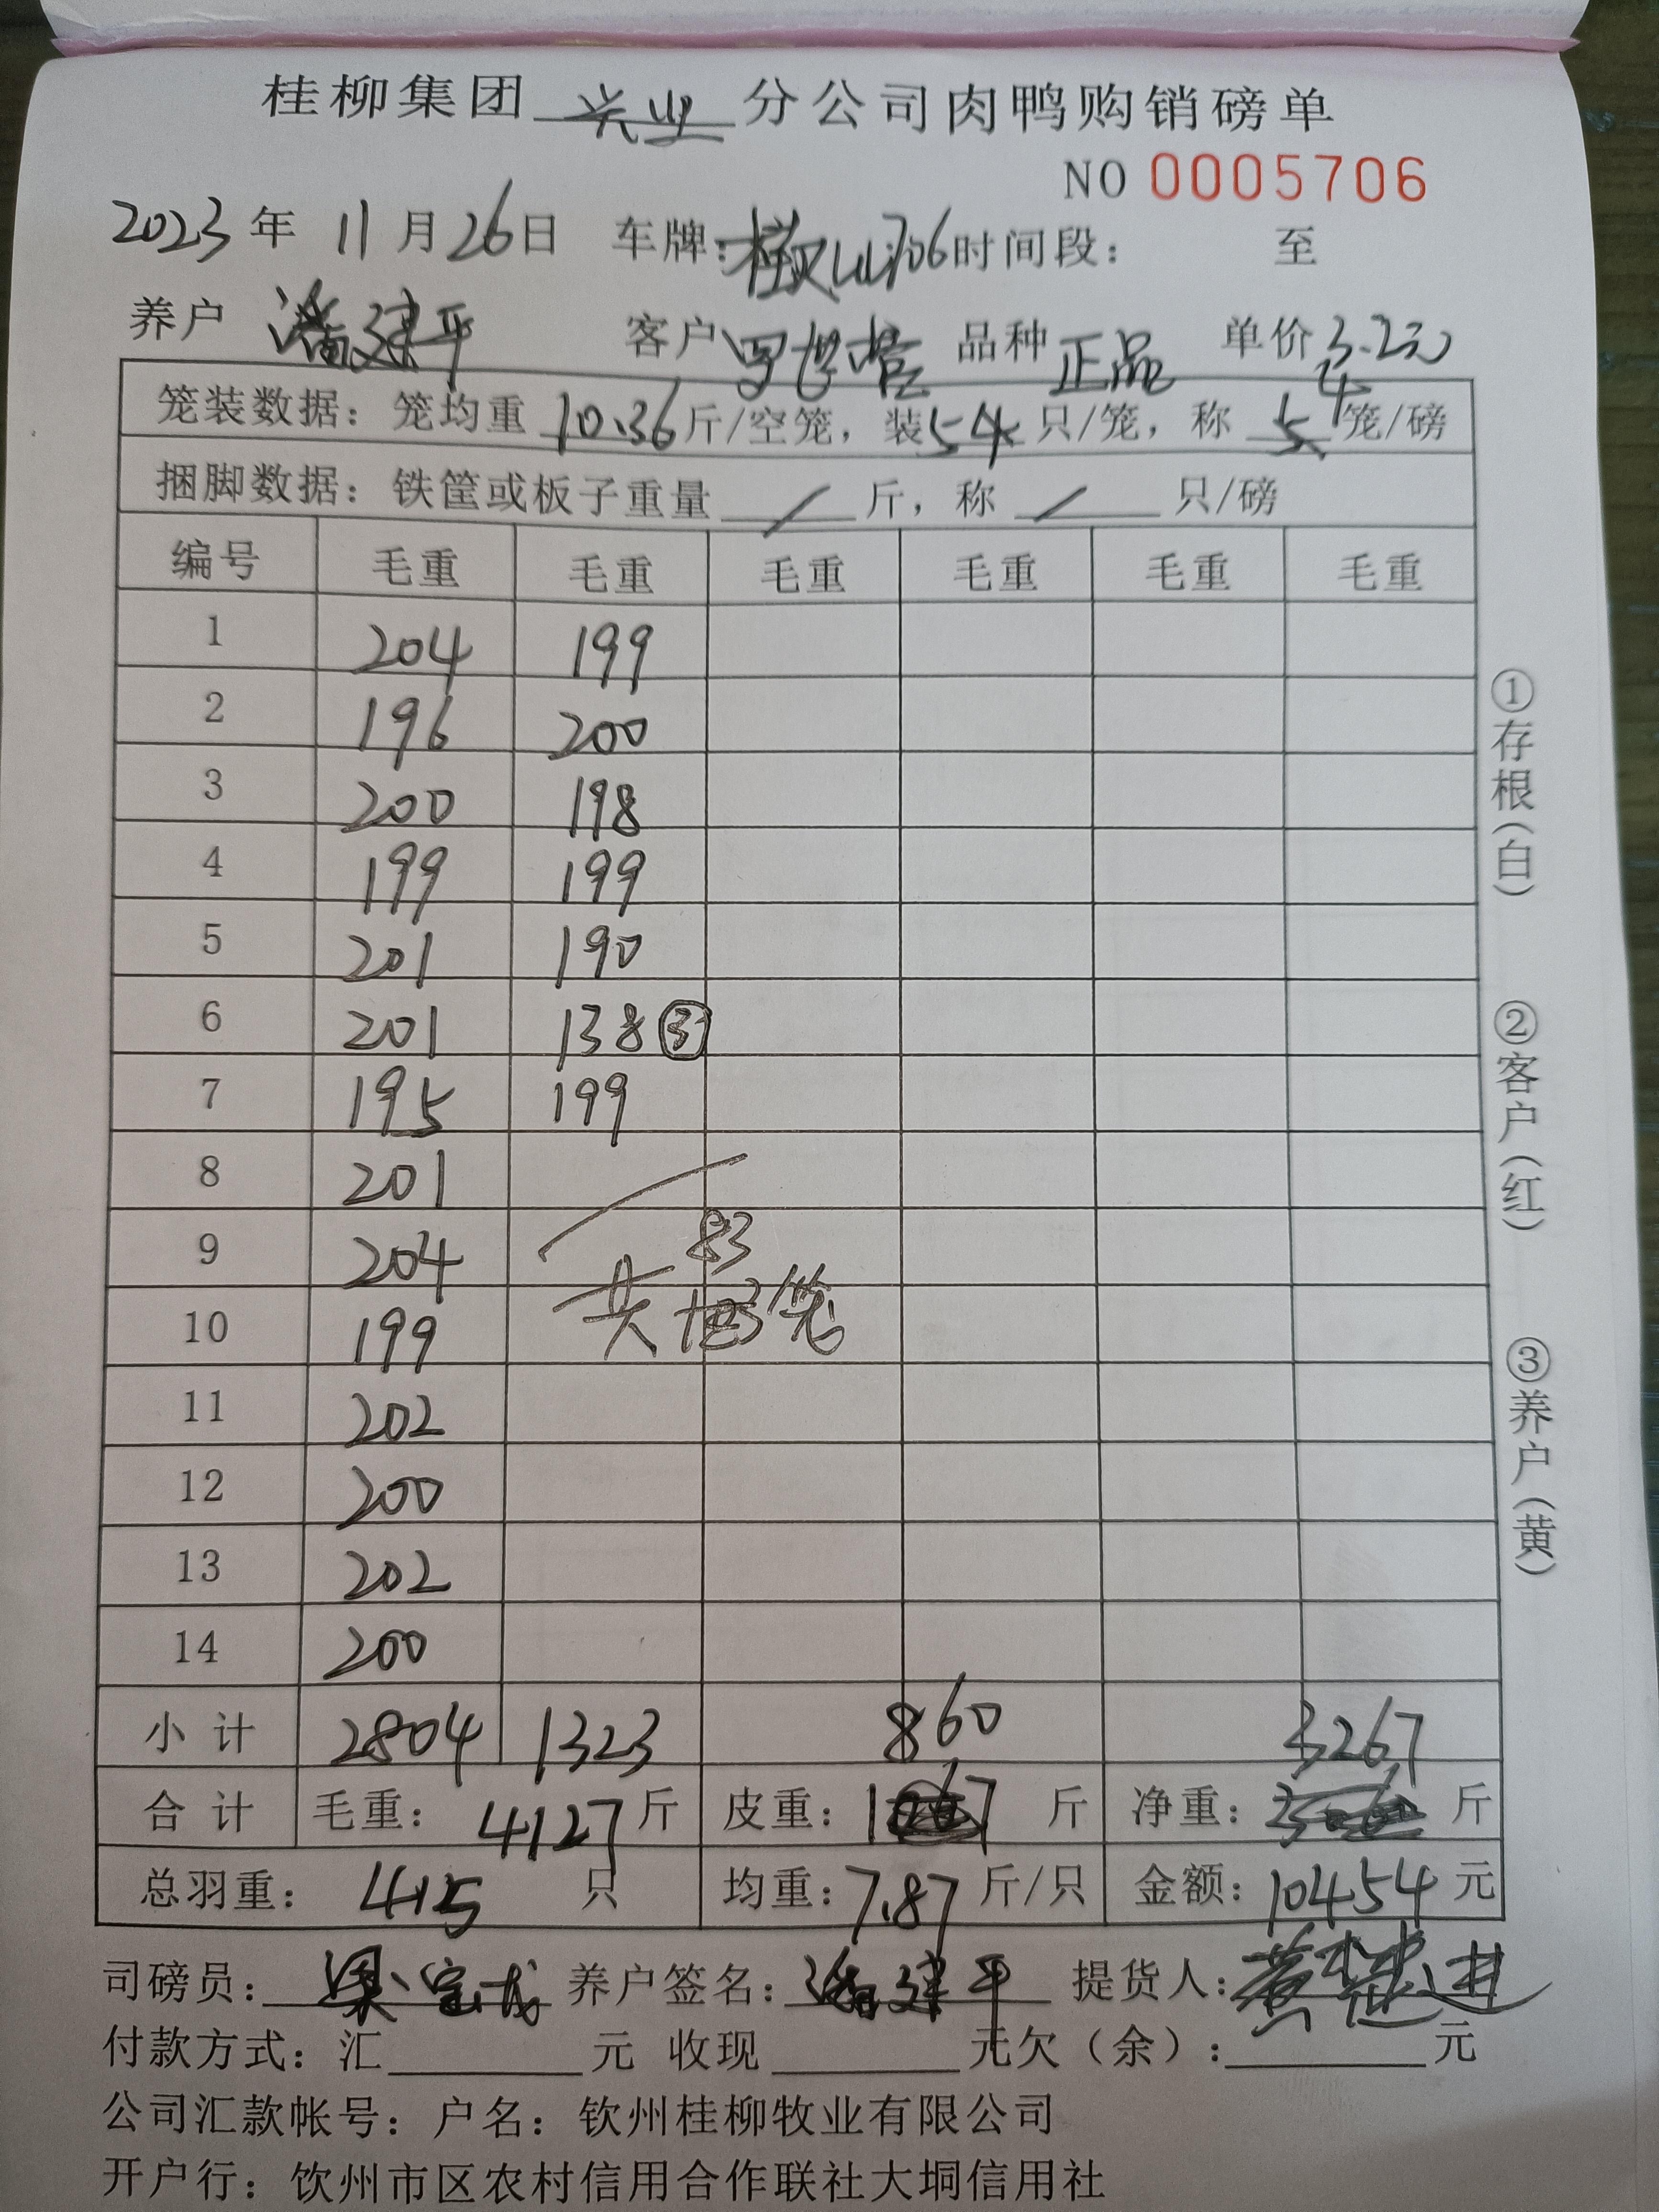 桂柳集团 兴业 分公司肉鸭购销磅单
NO 0005706
2023 年 11 月 26 日 车牌: 706 时间段: 至
养户 潘建平 客户 品种 正品 单价 3.2元
笼装数据: 笼均重 10.36 斤/空笼, 装 5 只/笼, 称 4 笼/磅
捆脚数据: 铁筐或板子重量 / 斤, 称 / 只/磅
编号 毛重 毛重 毛重 毛重 毛重 毛重
1 204 199
2 196 200
3 200 198
4 199 199
5 201 190
6 201 138 ③
7 195 199
8 201
9 204 83
10 199 共 笼
11 202
12 200
13 202
14 200
小计 2804 1323 860 3267
合计 毛重: 4127 斤 皮重: 斤 净重: 斤
总羽重: 415 只 均重: 7.87 斤/只 金额: 10454 元
司磅员: 梁 养户签名: 潘建平 提货人: 黄 进
付款方式: 汇 元 收现 元欠(余): 元
公司汇款帐号: 户名: 钦州桂柳牧业有限公司
开户行: 饮州市区农村信用合作联社大垌信用社
①存根(白)
②客户(红)
③养户(黄)